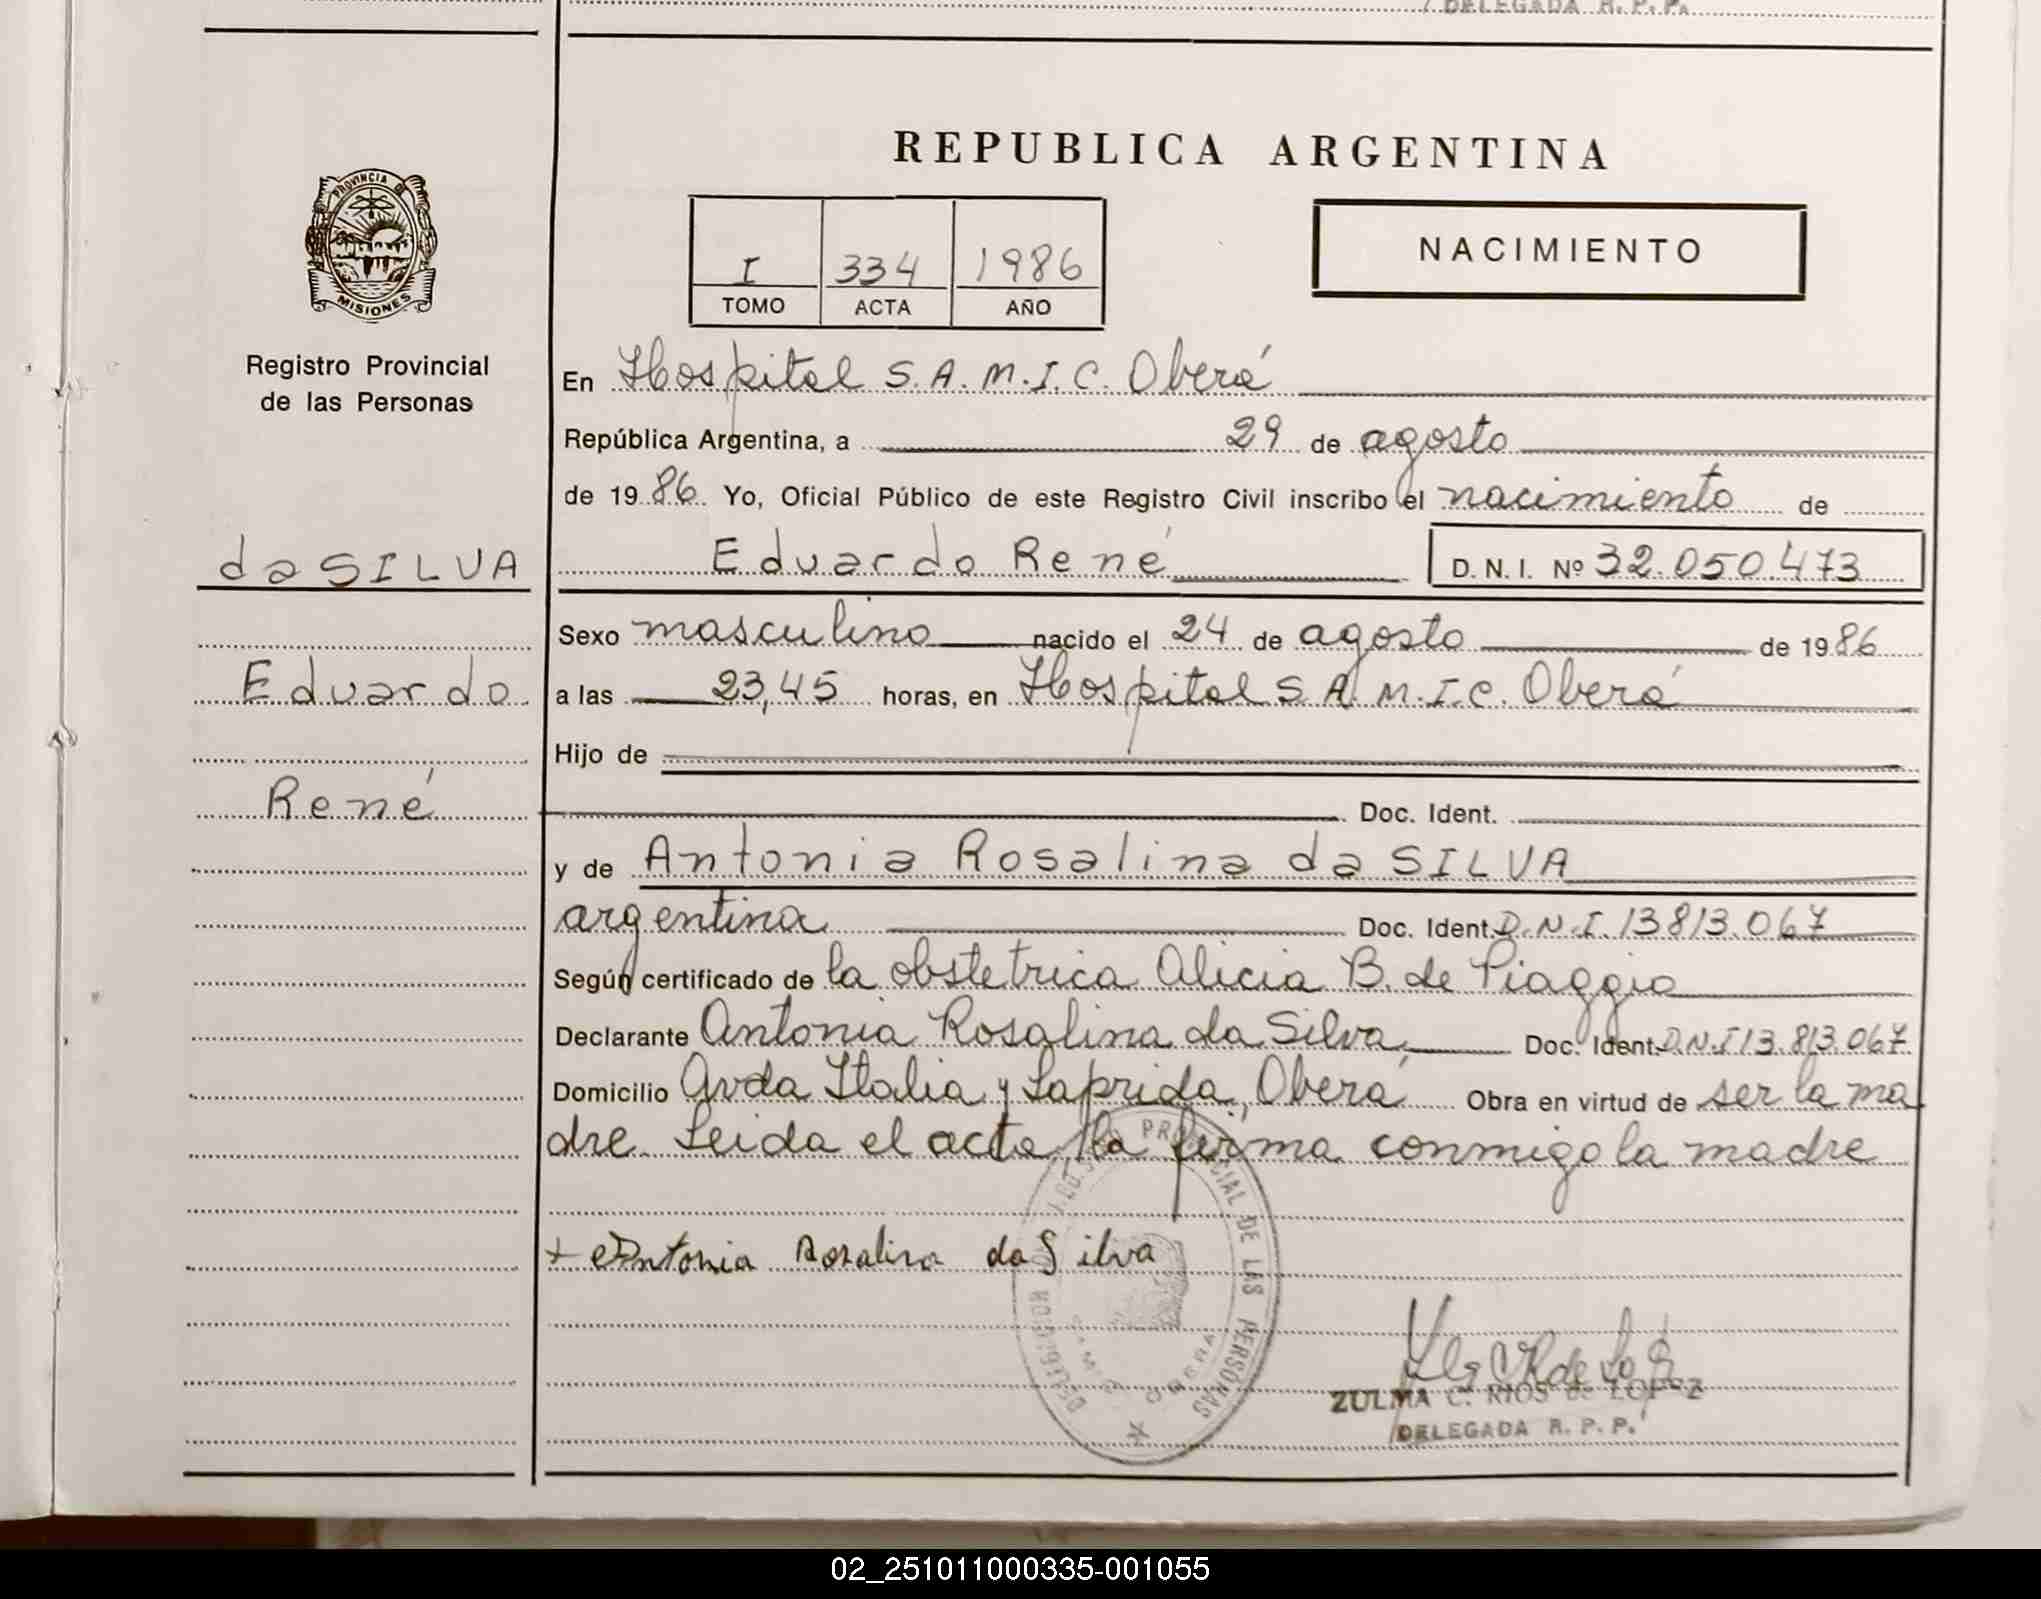 DELEGADA R. P. P.
REPUBLICA ARGENTINA
PROVINCIA DE
MISIONES
Registro Provincial
de las Personas
I 334 1986
TOMO ACTA AÑO
NACIMIENTO
En Hospital S.A.M.I.C. Oberá
República Argentina, a 29 de agosto
de 1986 Yo, Oficial Público de este Registro Civil inscribo el nacimiento de
da SILVA
Eduardo René D. N. I. Nº 32.050.473
Sexo masculino nacido el 24 de agosto de 1986
Eduardo
a las 23,45 horas, en Hospital S.A.M.I.C. Oberá
Hijo de
René
Doc. Ident.
y de Antonia Rosalina da SILVA
argentina Doc. Ident. D.N.I. 13813.067
Según certificado de la obstetrica Alicia B. de Piaggio
Declarante Antonia Rosalina da Silva, Doc. Ident. D.N.I 13.813.067
Domicilio Avda Italia y Laprida, Oberá Obra en virtud de ser la ma
dre. Leida el acta la firma conmigo la madre
+ Antonia Rosalina da Silva
PROVINCIAL DE LAS PERSONAS
DELEGACION
OBERA
ZULMA C. RIOS de LOPEZ
DELEGADA R. P. P.
02_251011000335-001055